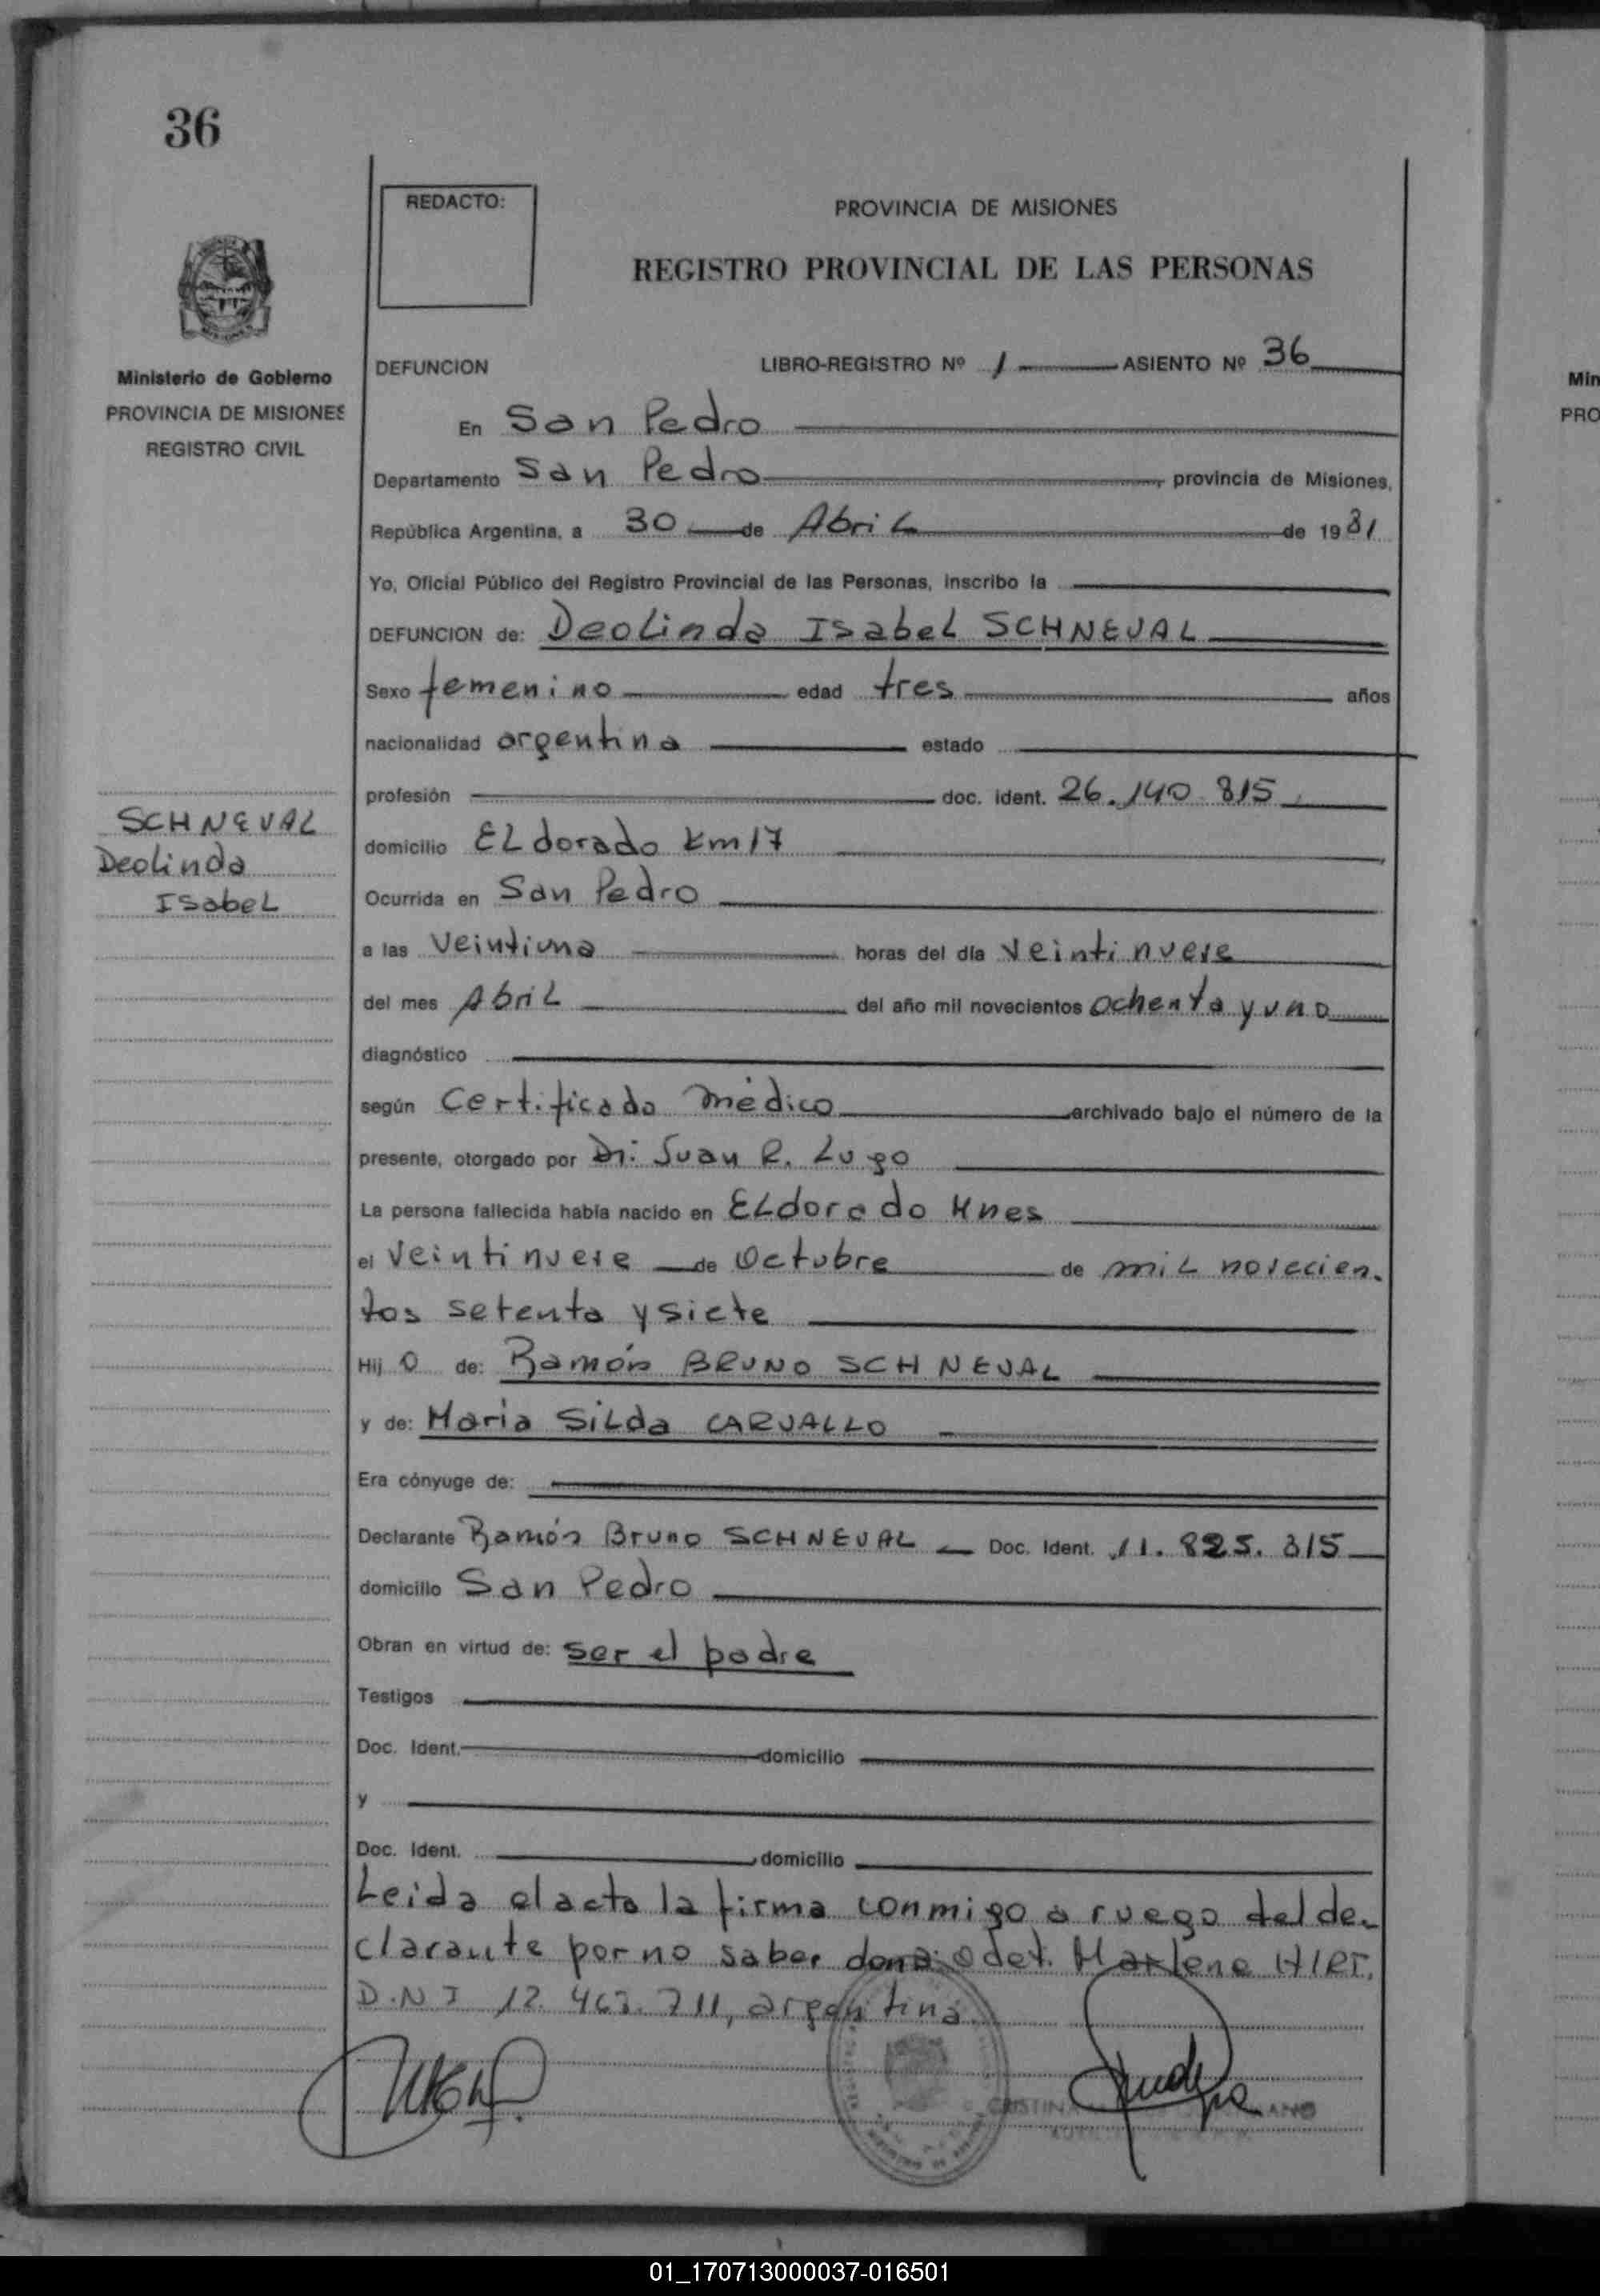 36
REDACTO:
PROVINCIA DE MISIONES
REGISTRO PROVINCIAL DE LAS PERSONAS
Ministerio de Gobierno
PROVINCIA DE MISIONES
REGISTRO CIVIL
DEFUNCION LIBRO-REGISTRO Nº 1 ASIENTO Nº 36
En San Pedro
Departamento San Pedro, provincia de Misiones,
República Argentina, a 30 de Abril de 1981
Yo, Oficial Público del Registro Provincial de las Personas, inscribo la
DEFUNCION de: Deolinda Isabel SCHNEVAL
Sexo femenino edad tres años
nacionalidad argentina estado
profesión doc. ident. 26.140.815
SCHNEVAL
Deolinda
Isabel
domicilio ELdorado Km 17
Ocurrida en San Pedro
a las veintiuna horas del día veintinueve
del mes Abril del año mil novecientos ochenta y uno
diagnóstico
según Certificado médico archivado bajo el número de la
presente, otorgado por Dr: Juan R. Lugo
La persona fallecida había nacido en ELdorado Mnes
el veintinueve de Octubre de mil novecien-
tos setenta y siete
Hij o de: Ramón BRUNO SCHNEVAL
y de: Maria SiLda CARVALLO
Era cónyuge de:
Declarante Ramón Bruno SCHNEVAL Doc. Ident. 11.825.815
domicilio San Pedro
Obran en virtud de: ser el padre
Testigos
Doc. Ident. domicilio
y
Doc. Ident. domicilio
Leida el acta la firma conmigo a ruego del de-
clarante por no saber doña Odet. Marlene HIRT.
D.N.I 12.463.711, argentina.
CRISTINA
01_170713000037-016501